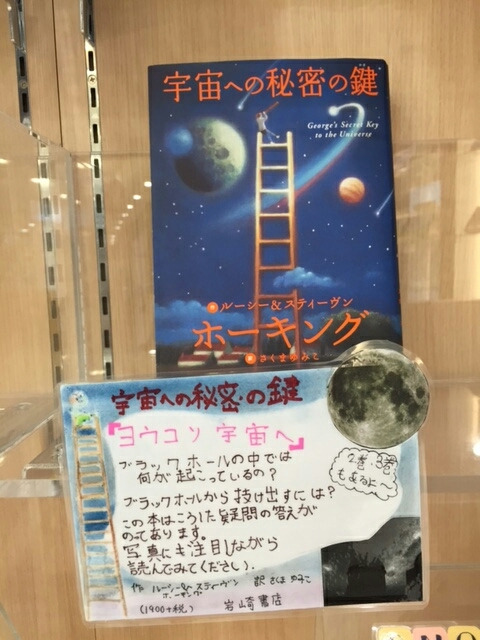 宇宙への秘密の鍵
George's Secret Key
to the Universe
作 ルーシー&スティーヴン
ホーキング
訳 さくまゆみこ
宇宙への秘密の鍵
『ヨウコソ 宇宙へ』
ブラックホールの中では
何が起こっているの?
ブラックホールから抜け出すには?
この本はこうした疑問の答えが
のってあります。
写真にも注目しながら
読んでみてください。
作 ルーシー& スティーヴン 訳 さくま ゆみこ
ホーキング
(1900+税) 岩崎書店
2巻・3巻
もあるよ